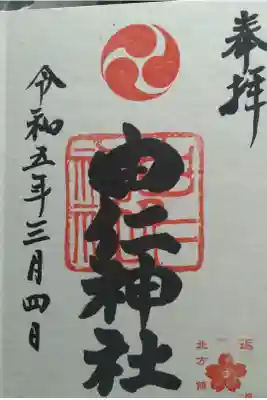 奉拝
由仁神社
令和五年三月四日
北方領
返